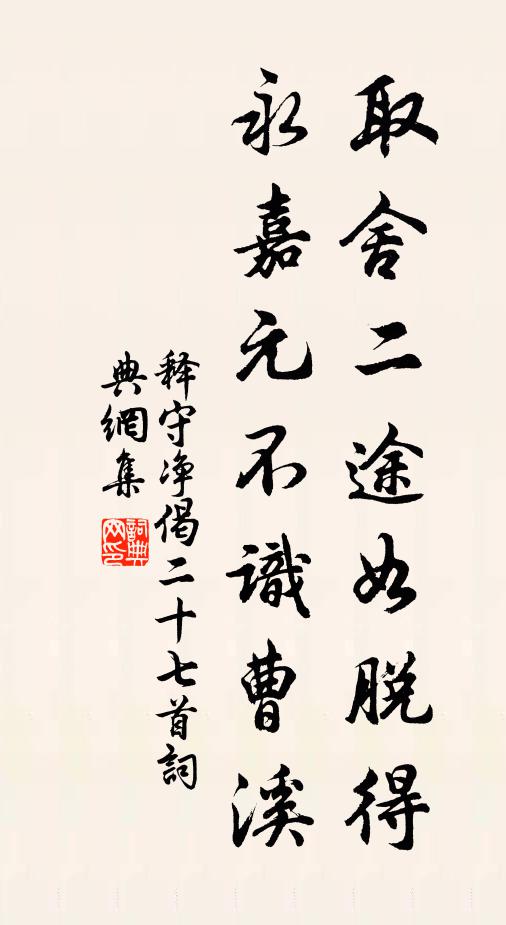 取舍二途如脱得
永嘉元不識曹溪
释守净偈二十七首詞
典網集
詞典
网印